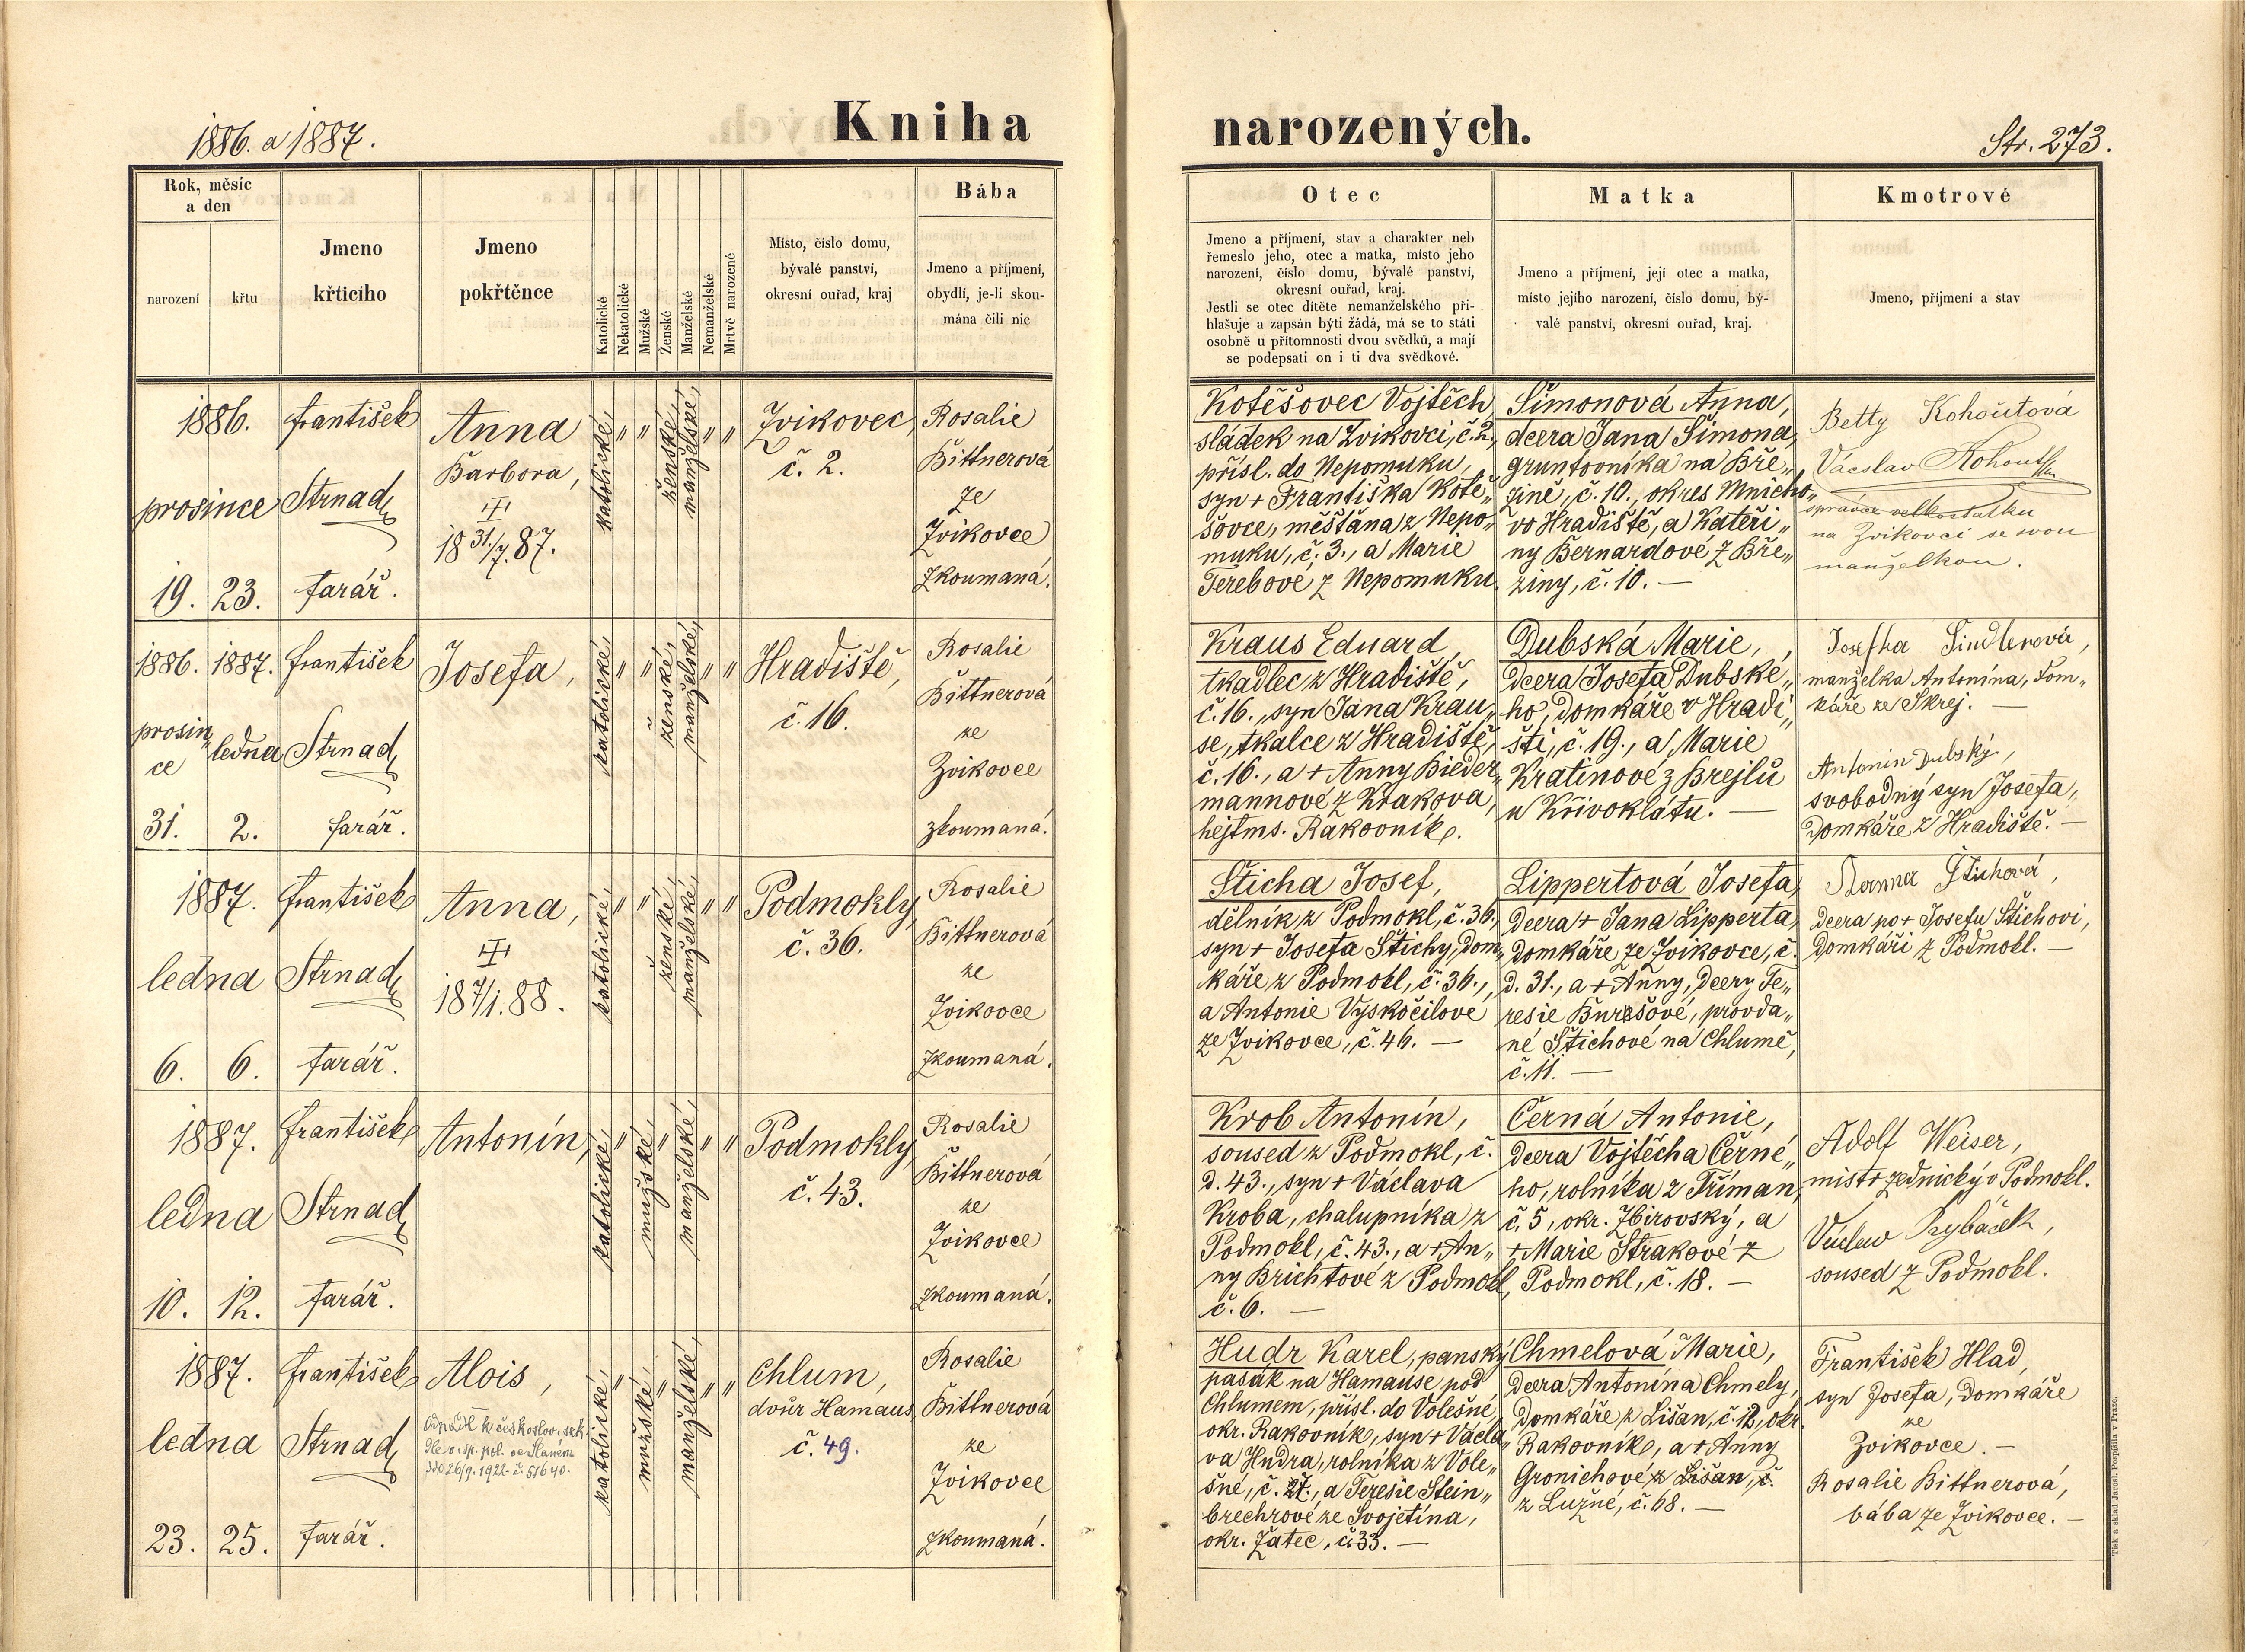 1886. a 1887.
Kniha
narozených.
Str. 273.
Rok, měsíc
a den
narození
křtu
Jmeno
křticího
Jmeno
pokřtěnce
Katolické
Nekatolické
Mužské
Ženské
Manželské
Nemanželské
Mrtvě narozené
Místo, číslo domu,
bývalé panství,
okresní ouřad, kraj
Bába
Jmeno a příjmení,
obydlí, je-li skou-
mána čili nic
Otec
Jmeno a příjmení, stav a charakter neb
řemeslo jeho, otec a matka, místo jeho
narození, číslo domu, bývalé panství,
okresní ouřad, kraj.
Jestli se otec dítěte nemanželského při-
hlašuje a zapsán býti žádá, má se to státi
osobně u přítomnosti dvou svědků, a mají
se podepsati on i ti dva svědkové.
Matka
Jmeno a příjmení, její otec a matka,
místo jejího narození, číslo domu, bý-
valé panství, okresní ouřad, kraj.
Kmotrové
Jmeno, příjmení a stav
1886.
prosince
19. 23.
František
Strnad,
farář.
Anna
Barbora,
18 31/7. 87.
katolické,
" "
ženské,
manželské,
" "
Zvikovec,
č. 2.
Rosalie
Bittnerová
ze
Zvikovce
zkoumaná.
Kotěšovec Vojtěch,
sládek na Zvikovci, č. 2.,
přísl. do Nepomuku,
syn + Františka Kotě„
šovce, měšťana z Nepo„
muku, č. 3., a Marie
Terebové z Nepomuku.
Šimonová Anna,
dcera Jana Šimona,
gruntovníka na Bře„
zině, č. 10., okres Mnicho„
vo Hradiště, a Kateři„
ny Bernardové z Bře„
ziny, č. 10. —
Betty Kohoutová
Václav Kohout
správce velkostatku
na Zvikovci se svou
manželkou.
1886. 1887.
prosin„
ce
ledna
31. 2.
František
Strnad,
farář.
Josefa,
katolické,
" "
ženské,
manželské,
" "
Hradiště,
č. 16.
Rosalie
Bittnerová
ze
Zvikovce
zkoumaná.
Kraus Eduard,
tkadlec z Hradiště,
č. 16., syn Jana Krau„
se, tkalce z Hradiště,
č. 16., a + Anny Bieder„
mannové z Krakova,
hejtms. Rakovník.
Dubská Marie,
dcera Josefa Dubské„
ho, domkáře v Hradi„
šti, č. 19., a Marie
Kratinové z Brejlů
u Křivoklátu. —
Josefka Šindlerová,
manželka Antonína, dom„
káře ze Skrej. —
Antonin Dubský,
svobodný syn Josefa,
domkáře z Hradiště. —
1887.
ledna
6. 6.
František
Strnad,
farář.
Anna,
18 7/1. 88.
katolické,
" "
ženské,
manželské,
" "
Podmokly,
č. 36.
Rosalie
Bittnerová
ze
Zvikovce
zkoumaná.
Šticha Josef,
dělník z Podmokl, č. 36.,
syn + Josefa Štichy, dom„
káře z Podmokl, č. 36.,
a Antonie Vyskočilové
ze Zvikovce, č. 46. —
Lippertová Josefa,
dcera + Jana Lipperta,
domkáře ze Zvikovce, č.
d. 31., a + Anny, dcery Te„
resie Burešové, provda„
né Štichové na Chlumě,
č. 11. —
Štichová,
dcera po + Josefu Štichovi,
domkáři z Podmokl. —
1887.
ledna
10. 12.
František
Strnad,
farář.
Antonín,
katolické,
"
mužské,
"
manželské,
" "
Podmokly,
č. 43.
Rosalie
Bittnerová
ze
Zvikovce
zkoumaná.
Krob Antonín,
soused z Podmokl, č.
d. 43., syn + Václava
Kroba, chalupníka z
Podmokl, č. 43., a + An„
ny Brichtové z Podmokl,
č. 6. —
Černá Antonie,
dcera Vojtěcha Černé„
ho, rolníka z Tříman,
č. 5, okr. Zbirovský, a
+ Marie Strakové z
Podmokl, č. 18. —
Adolf Weiser,
mistr zednický v Podmokl.
Václav Rybáček,
soused z Podmokl.
1887.
ledna
23. 25.
František
Strnad,
farář.
Alois,
k českoslov.
26/9. 1922. č. 51640.
katolické,
"
mužské,
"
manželské,
" "
Chlum,
dvůr Hamaus,
č. 49.
Rosalie
Bittnerová
ze
Zvikovce
zkoumaná.
Hudr Karel, panský
pasák na Hamause pod
Chlumem, přísl. do Volešné,
okr. Rakovník, syn + Václa„
va Hudra, rolníka z Vole„
šné, č. 27., a Teresie Stein„
brechrové ze Svojetína,
okr. Žatec, č. 33. —
Chmelová Marie,
dcera Antonína Chmely,
domkáře z Lišan, č. 12, okr.
Rakovník, a + Anny
Gronichové z Lišan, č.
z Lužné, č. 68. —
František Hlad,
syn Josefa, domkáře
ze
Zvikovce. —
Rosalie Bittnerová,
bába ze Zvikovce. —
Tisk a sklad Jarosl. Pospíšila v Praze.